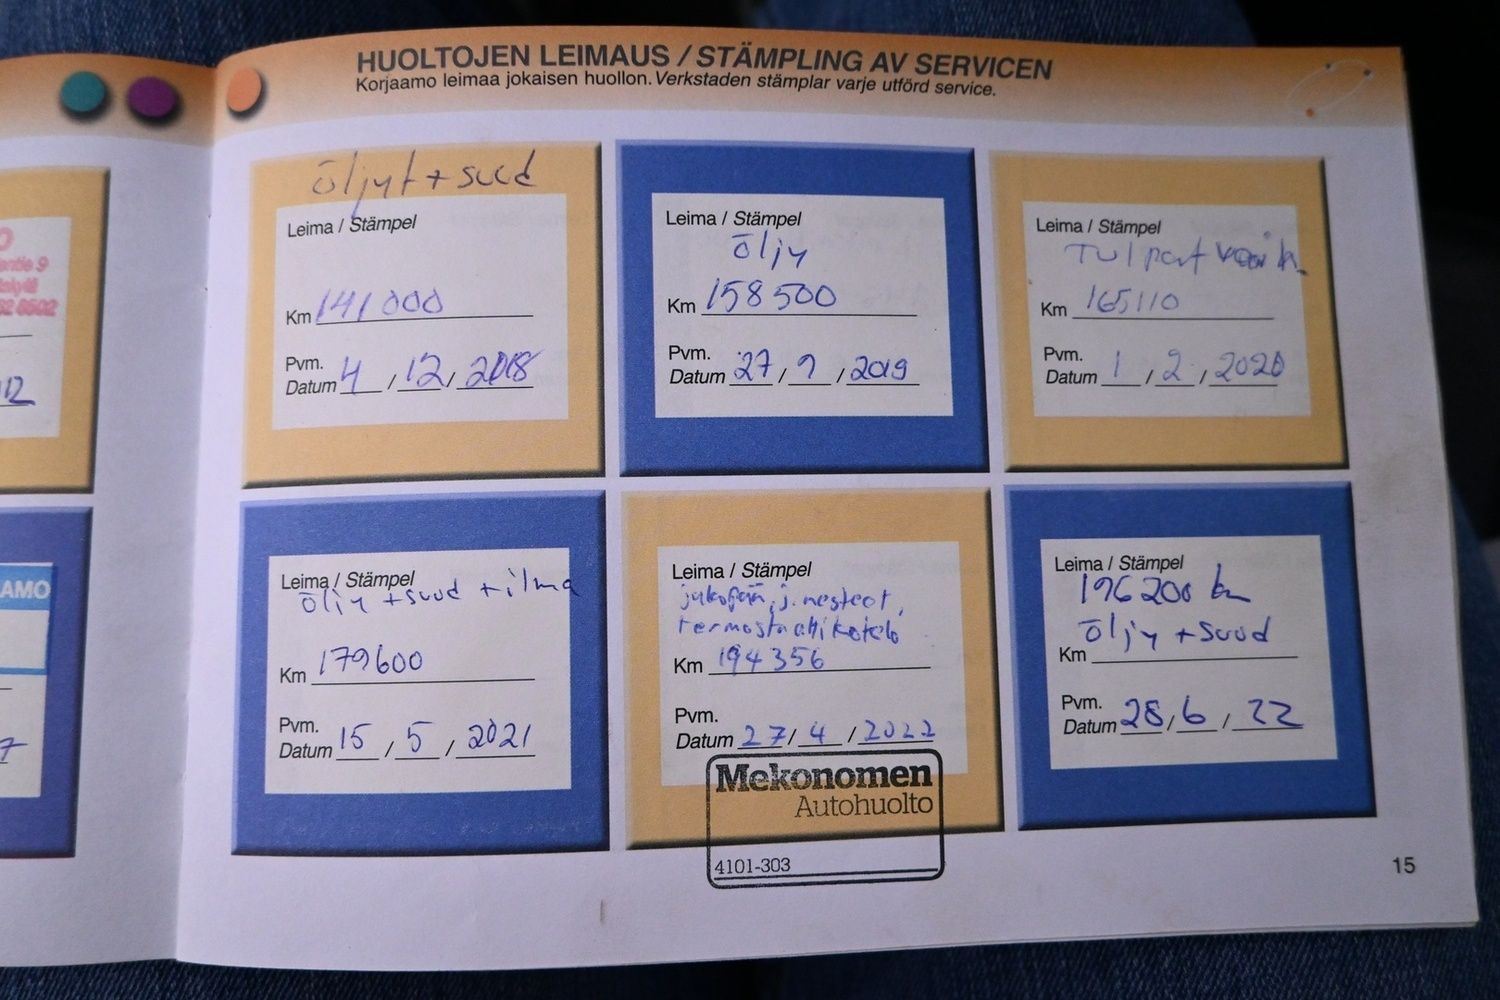 HUOLTOJEN LEIMAUS / STÄMPLING AV SERVICEN
Korjaamo leimaa jokaisen huollon. Verkstaden stämplar varje utförd service.
öljyt + suod
Leima / Stämpel
Km 141000
Pvm.
Datum 4 / 12 / 2018
Leima / Stämpel
öljy
Km 158500
Pvm.
Datum 27 / 9 / 2019
Leima / Stämpel
Tulpat vaih.
Km 165110
Pvm.
Datum 1 / 2 / 2020
Leima / Stämpel
öljy + suod + ilma
Km 179600
Pvm.
Datum 15 / 5 / 2021
Leima / Stämpel
jakopää, j.nesteet,
termostaattikotelo
Km 194356
Pvm.
Datum 27 / 4 / 2022
Mekonomen
Autohuolto
4101-303
Leima / Stämpel
196200 km
öljy + suod
Km
Pvm.
Datum 28 / 6 / 22
15
O
entie 9
02
AMO
7